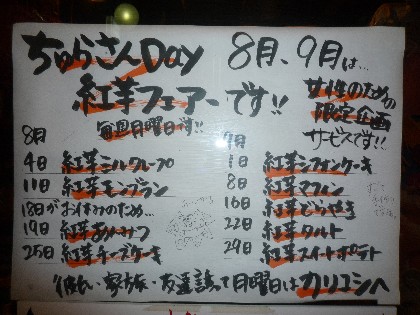 ちゅらさんDay 8月、9月は…
紅芋フェアーです!!
女性のための
限定企画
サービスです!!
毎週月曜日です!!
8月
4日 紅芋ミルクレープ
11日 紅芋モンブラン
18日がお休みのため…
19日 紅芋あんみつ
25日 紅芋チーズケーキ
9月
1日 紅芋シフォンケーキ
8日 紅芋マフィン
16日 紅芋どらやき
22日 紅芋タルト
29日 紅芋スイートポテト
彼氏・家族・友達誘って月曜日はカリユシへ